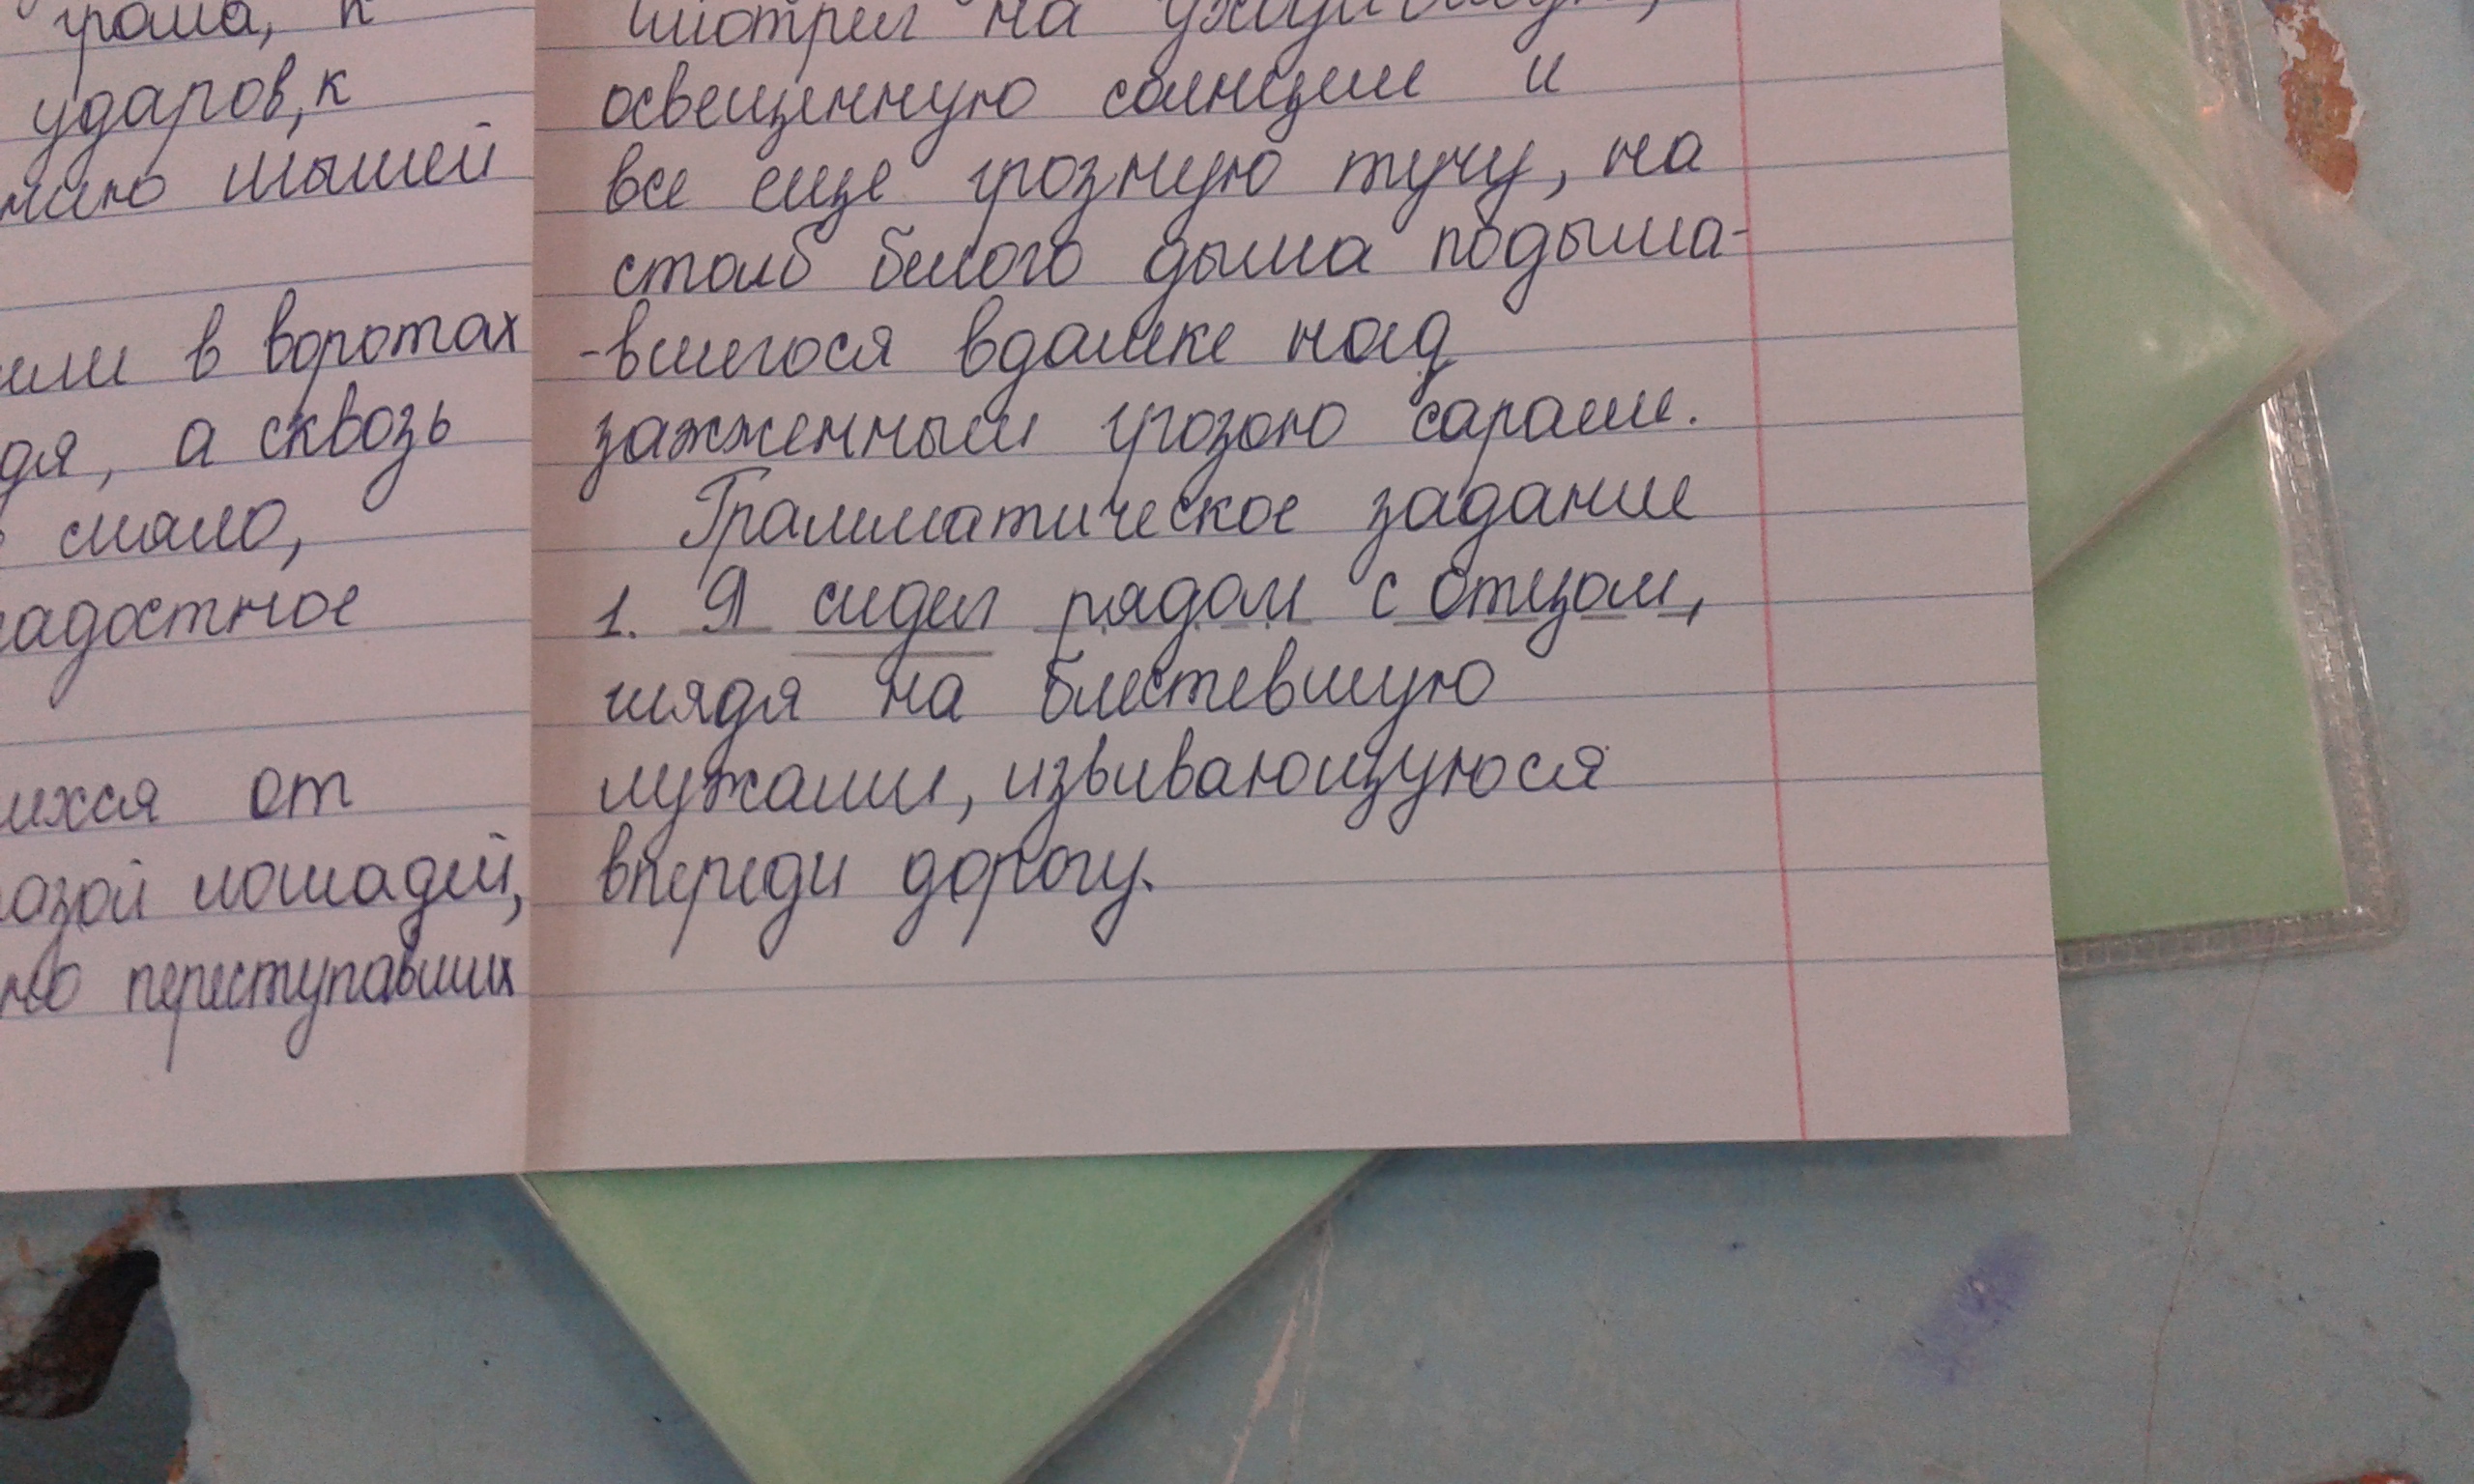 грома, к
ударов, к
мышей
в воротах
а сквозь
смяло,
радостное
от
лошадей,
переступавших
смотрел на уходившую,
освещенную солнцем и
все еще грозную тучу, на
столб белого дыма подыма-
-вшегося вдалеке над
зажженным грозою сараем.
Грамматическое задание
1. Я сидел рядом с отцом,
глядя на блестевшую
лужами, извивающуюся
впереди дорогу.